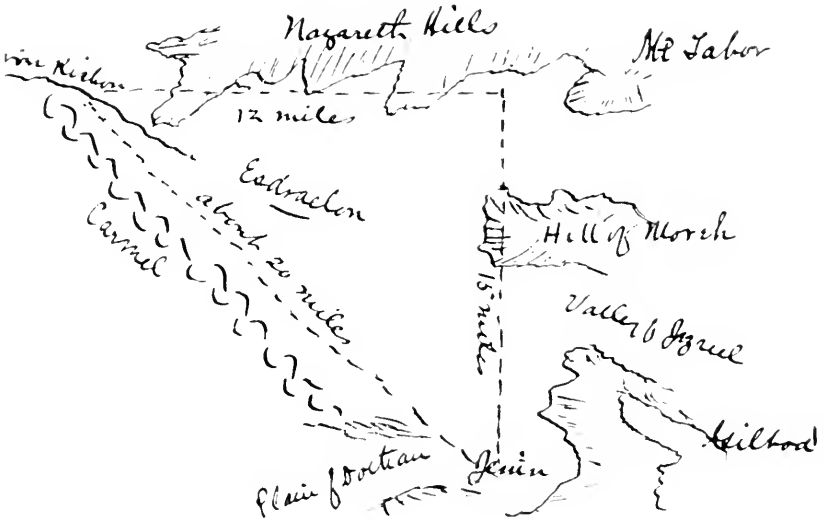 Nazareth Hills
Mt Tabor
Kishon
12 miles
Esdraelon
about 20 miles
Carmel
Hill of Moreh
15 miles
Valley of Jezreel
Gilboa
Plain of Dothan
Jenin